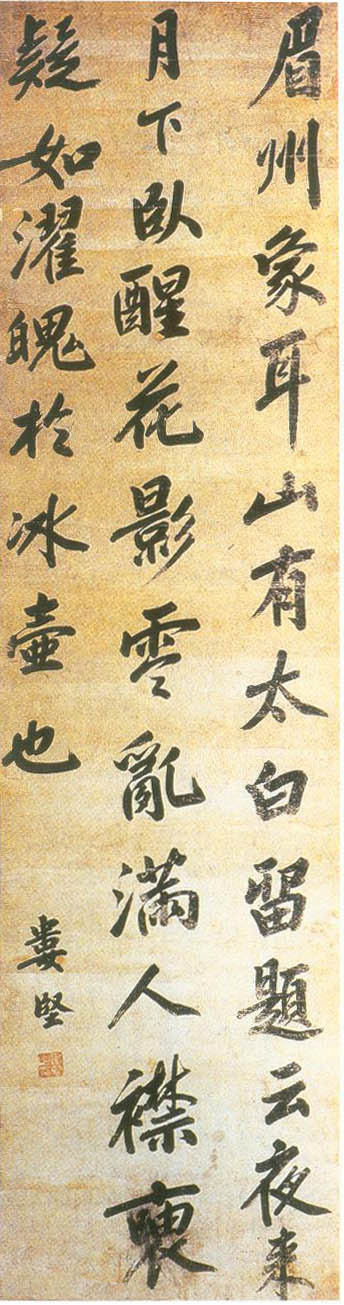 眉州象耳山有太白留題云夜来
月下臥醒花影零亂滿人襟褏
疑如濯魄於冰壺也
婁堅